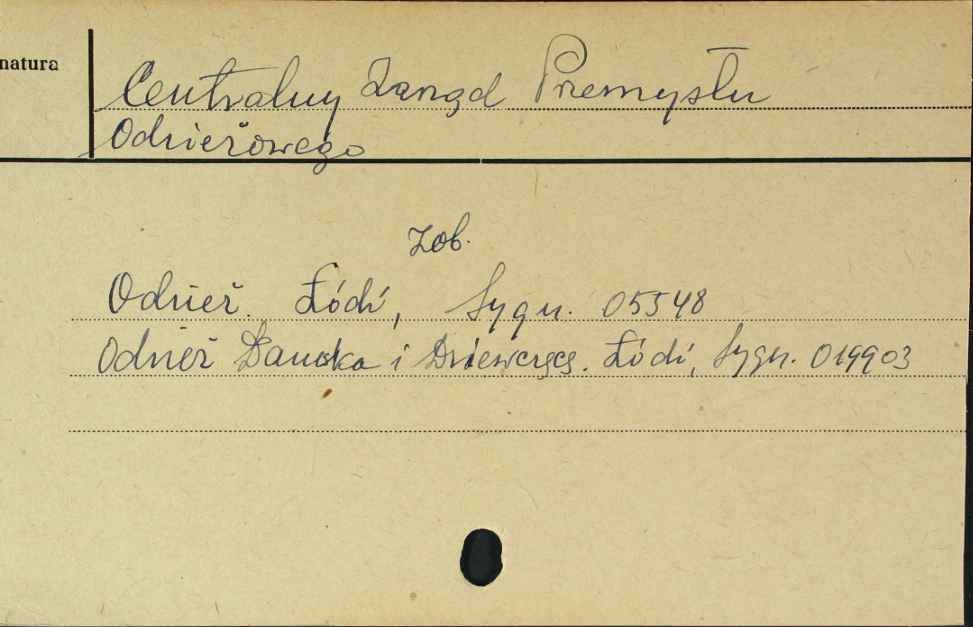 natura
Centralny Zarząd Przemysłu
Odzieżowego
zob.
Odzież. Łódź, Sygn. 05548
Odzież Damska i Dziewczęc. Łódź, Sygn. 019903